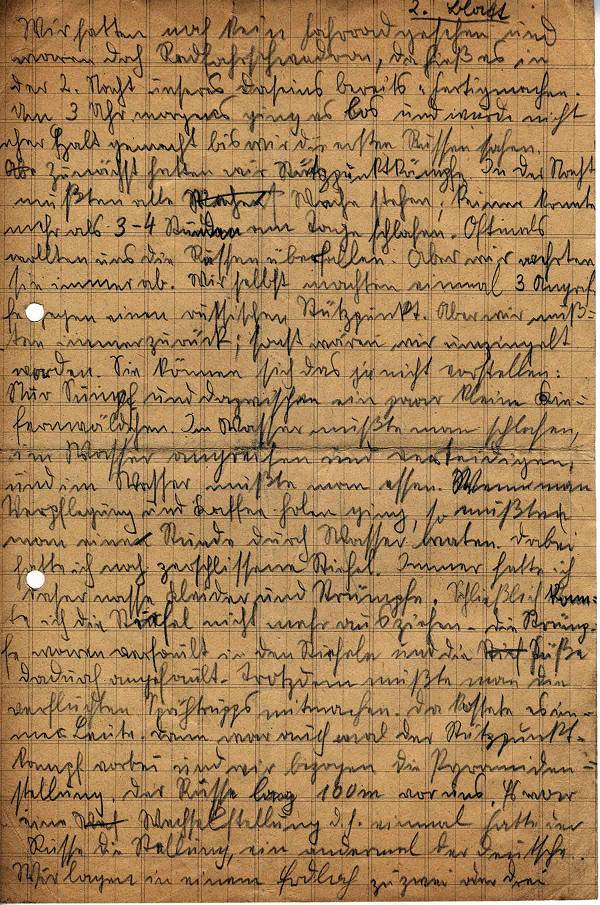 2. Blatt
Wir hatten noch kein Fahrrad gesehen und
waren doch Radfahrschwadron, da hieß es in
der 2. Nacht unseres Daseins bereits: fertigmachen.
Um 3 Uhr morgens ging es los und wurde nicht
eher Halt gemacht bis wir die ersten Russen sahen.
Zunächst hatten wir Stützpunktkämpfe. In der Nacht
mußten alle Wache stehen; keiner konnte
mehr als 3-4 Stunden am Tage schlafen. Oftmals
wollten uns die Russen überfallen. Aber wir wehrten
sie immer ab. Wir selbst machten einmal 3 Angrif-
fe gegen einen russischen Stützpunkt. Aber wir muß-
ten immer zurück; sonst wären wir umzingelt
worden. Sie können sich das ja nicht vorstellen:
Nur Sumpf und dazwischen ein paar kleine Kie-
fernwäldchen. Im Wasser mußte man schlafen,
im Wasser angreifen und verteidigen,
und im Wasser mußte man essen. Wenn man
Verpflegung und Kaffee holen ging, so mußten
man eine Stunde durch Wasser waten. Dabei
hatte ich noch zerschlissene Stiefel. Immer hatte ich
daher nasse Kleider und Strümpfe. Schließlich konn-
te ich die Stiefel nicht mehr ausziehen - die Strümp-
fe waren verfault in den Stiefeln und die Füße
dadurch angefault. Trotzdem mußte man die
verfluchten Spähtrupps mitmachen. Da kostete es im-
mer Leute. Dann war auch mal der Stützpunkt-
kampf vorbei und wir bezogen die Pyramiden-
stellung. Der Russe lag 100m vor uns. Es war
eine Wechselstellung d.h. einmal hatte der
Russe die Stellung, ein andermal der Deutsche.
Wir lagen in einem Erdloch zu zwei oder drei